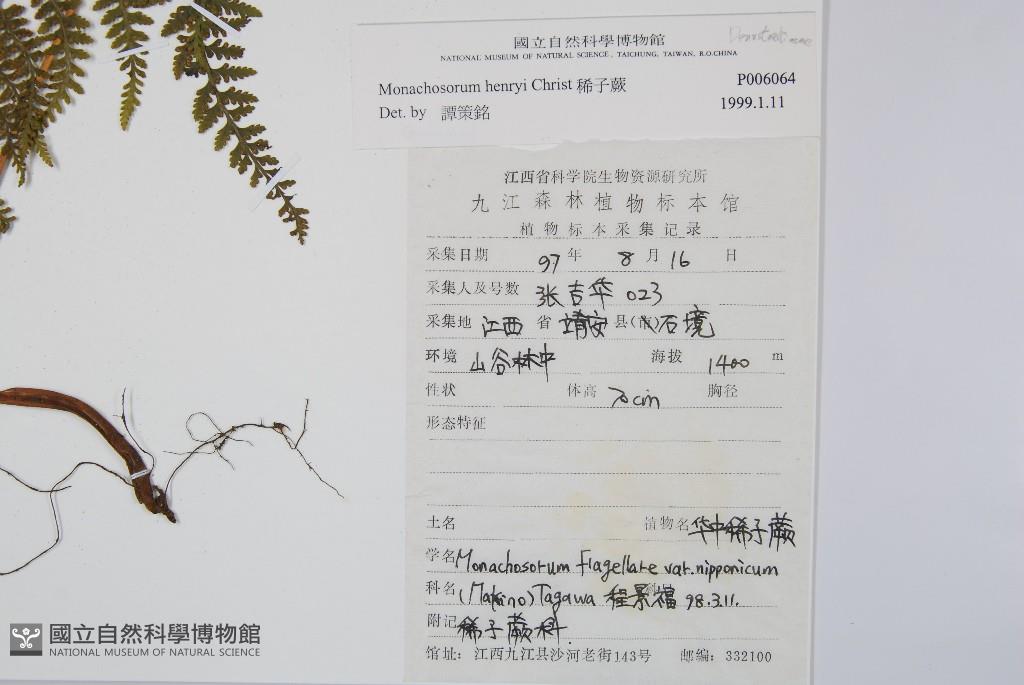 國立自然科學博物館
NATIONAL MUSEUM OF NATURAL SCIENCE, TAICHUNG, TAIWAN, R.O.CHINA
Monachosorum henryi Christ 稀子蕨 P006064
Det. by 譚策銘 1999.1.11
江西省科学院生物资源研究所
九江森林植物标本馆
植物标本采集记录
采集日期 97 年 8 月 16 日
采集人及号数 张吉华 023
采集地 江西 省 靖安 县(市) 石境
环境 山谷林中 海拔 1400 m
性状 体高 70cm 胸径
形态特征
土名 植物名 华中稀子蕨
学名 Monachosorum flagellare var. nipponicum
科名 (Makino) Tagawa 程景福 98.3.11.
附记 稀子蕨科.
馆址: 江西九江县沙河老街143号 邮编: 332100
國立自然科學博物館
NATIONAL MUSEUM OF NATURAL SCIENCE